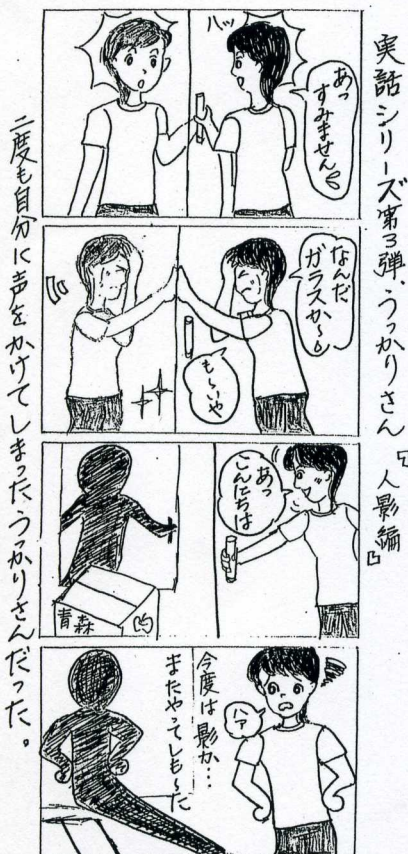 実話シリーズ第3弾、うっかりさん『人影編』
ハッ
あっ
すみません
なんだ
ガラスか〜
も〜いや
あっ
こんにちは
青森
ハァ
今度は影か…
またやってしも〜た
二度も自分に声をかけてしまった、うっかりさんだった。